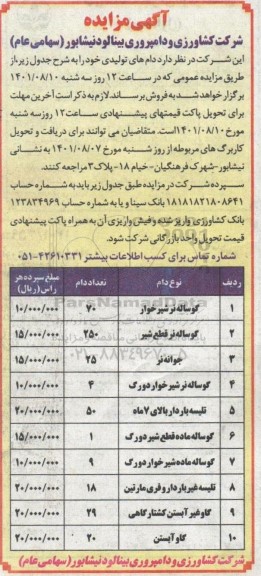 آگهی مزایده
شرکت کشاورزی و دامپروری بینالود نیشابور (سهامی عام)
این شرکت در نظر دارد دام های تولیدی خود را به شرح جدول زیر، از
طریق مزایده عمومی که در ساعت ۱۲ روز سه شنبه ۱۴۰۱/۰۸/۱۰
برگزار خواهد شد به فروش برساند. لازم به ذکر است آخرین مهلت
برای تحویل پاکت قیمتهای پیشنهادی ساعت ۱۲ روز سه شنبه
مورخ ۱۴۰۱/۰۸/۱۰ است. متقاضیان می توانند برای دریافت و تحویل
کاربرگ های مربوطه از روز شنبه مورخ ۱۴۰۱/۰۸/۰۷ به نشانی
نیشابور-شهرک فرهنگیان-خیام ۱۸-پلاک ۳ مراجعه کنند.
سپرده شرکت در مزایده طبق جدول زیر باید به شماره حساب
۱۸۱۸۱۸۲۱۸۰۸۶۴۱ بانک سینا و یا به شماره حساب ۱۲۳۸۳۴۹۶۹
بانک کشاورزی واریز شده و فیش واریزی آن به همراه پاکت پیشنهادی
قیمت تحویل واحد بازرگانی شرکت شود.
شماره تماس برای کسب اطلاعات بیشتر ۴۲۶۱۰۳۳۱-۰۵۱
ردیف نوع دام تعداد دام مبلغ سپرده هر راس (ریال)
۱ گوساله نر شیرخوار ۷۰ ۱۰/۰۰۰/۰۰۰
۲ گوساله نر قطع شیر ۲۵۰ ۱۵/۰۰۰/۰۰۰
۳ جوانه نر ۲۵ ۱۵/۰۰۰/۰۰۰
۴ گوساله نر شیرخوار دورگ ۴ ۱۰/۰۰۰/۰۰۰
۵ تلیسه باردار بالای ۷ ماه ۵۰ ۲۰/۰۰۰/۰۰۰
۶ گوساله ماده قطع شیر دورگ ۱ ۱۵/۰۰۰/۰۰۰
۷ گوساله ماده شیرخوار دورگ ۹ ۱۰/۰۰۰/۰۰۰
۸ تلیسه غیر باردار و فری مارتین ۱۸ ۲۰/۰۰۰/۰۰۰
۹ گاو غیر آبستن کشتارگاهی ۲۹ ۲۰/۰۰۰/۰۰۰
۱۰ گاو آبستن ۲۰ ۲۰/۰۰۰/۰۰۰
شرکت کشاورزی و دامپروری بینالود نیشابور (سهامی عام)